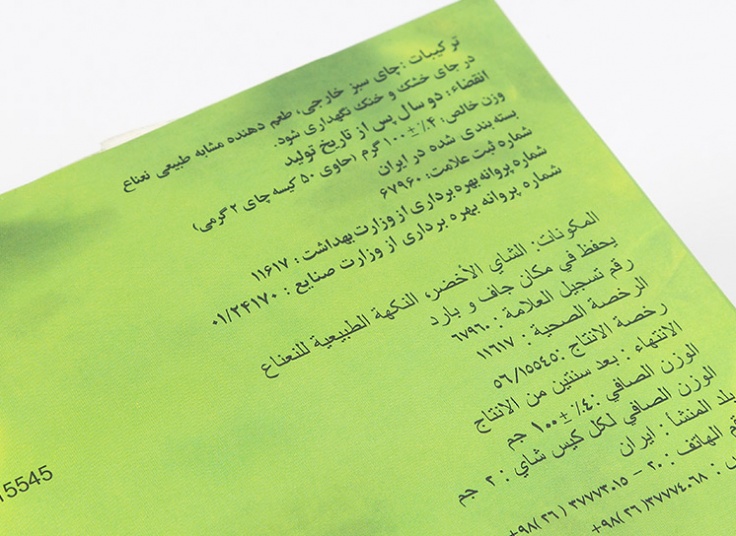 ترکیبات: چای سبز خارجی، طعم دهنده مشابه طبیعی نعناع
در جای خشک و خنک نگهداری شود.
انقضاء: دو سال پس از تاریخ تولید
وزن خالص: ۴٪±۱۰۰ گرم (حاوی ۵۰ کیسه چای ۲ گرمی)
بسته بندی شده در ایران
شماره ثبت علامت: ۶۷۹۶۰
شماره پروانه بهره برداری از وزارت بهداشت: ۱۱۶۱۷
شماره پروانه بهره برداری از وزارت صنایع : ۰۱/۲۴۱۷۰
المكونات: الشاي الأخضر، النكهة الطبيعية للنعناع
يحفظ في مكان جاف و بارد
رقم تسجيل العلامة: ٦٧٩٦٠
الرخصة الصحية: ١١٦١٧
رخصة الانتاج: ٥٦/١٥٥٤٥
الانتهاء: بعد سنتين من الانتاج
الوزن الصافي: ٤٪±١٠٠ جم
الوزن الصافي لكل كيس شاي: ٢ جم
بلد المنشأ: ايران
قم الهاتف: ٢٠ - ٣٧٧٧٣٠١٥ (٢٦) ٩٨+
: ٣٧٧٧٤٠٦٨ (٢٦) ٩٨+
15545